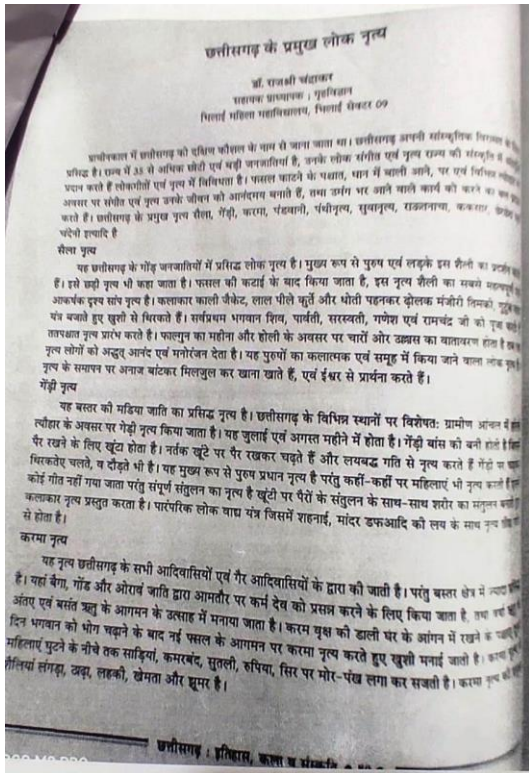 छत्तीसगढ़ के प्रमुख लोक नृत्य
डॉ. राजश्री चंद्राकर
सहायक प्राध्यापक : गृहविज्ञान
भिलाई महिला महाविद्यालय, भिलाई सेक्टर 09
प्राचीनकाल में छत्तीसगढ़ को दक्षिण कौशल के नाम से जाना जाता था। छत्तीसगढ़ अपनी सांस्कृतिक विरासत के लिए
प्रसिद्ध है। राज्य में 35 से अधिक छोटी एवं बड़ी जनजातियां है, उनके लोक संगीत एवं नृत्य राज्य की संस्कृति में
प्रदान करते हैं लोकगीतों एवं नृत्य में विविधता है। फसल काटने के पश्चात, धान में बाली आने, पर एवं विभिन्न
अवसर पर संगीत एवं नृत्य उनके जीवन को आनंदमय बनाते हैं, तथा उमंग भर आने वाले कार्य को करने का
करते हैं। छत्तीसगढ़ के प्रमुख नृत्य सैला, गेंड़ी, करमा, पंडवानी, पंथीनृत्य, सुवानृत्य, राऊतनाचा, ककसार,
चंदेनी इत्यादि है
सैला नृत्य
यह छत्तीसगढ़ के गोंड़ जनजातियों में प्रसिद्ध लोक नृत्य है। मुख्य रूप से पुरुष एवं लड़के इस शैली का प्रदर्शन
हैं। इसे छड़ी नृत्य भी कहा जाता है। फसल की कटाई के बाद किया जाता है, इस नृत्य शैली का सबसे महत्वपूर्ण
आकर्षक दृश्य सांप नृत्य है। कलाकार काली जैकेट, लाल पीले कुर्ते और धोती पहनकर ढ़ोलक मंजीरी तिमकी,
यंत्र बजाते हुए खुशी से थिरकते हैं। सर्वप्रथम भगवान शिव, पार्वती, सरस्वती, गणेश एवं रामचंद्र जी को पूजा
ततपश्चात नृत्य प्रारंभ करते है। फाल्गुन का महीना और होली के अवसर पर चारों और उल्लास का वातावरण होता है
नृत्य लोगों को अद्भुत् आनंद एवं मनोरंजन देता है। यह पुरुषों का कलात्मक एवं समूह में किया जाने वाला लोक
नृत्य के समापन पर अनाज बांटकर मिलजुल कर खाना खाते हैं, एवं ईश्वर से प्रार्थना करते हैं।
गेंड़ी नृत्य
यह बस्तर की मडिया जाति का प्रसिद्ध नृत्य है। छत्तीसगढ़ के विभिन्न स्थानों पर विशेषत: ग्रामीण आंचल में
त्यौहार के अवसर पर गेड़ी नृत्य किया जाता है। यह जुलाई एवं अगस्त महीने में होता है। गेंड़ी बांस की बनी होती है
पैर रखने के लिए खूंटा होता है। नर्तक खूंटे पर पैर रखकर चढ़ते हैं और लयबद्ध गति से नृत्य करते हैं गेंड़ी पर
थिरकतेए चलते, व दौड़ते भी है। यह मुख्य रूप से पुरुष प्रधान नृत्य है परंतु कहीं-कहीं पर महिलाएं भी नृत्य करती हैं
कोई गीत नहीं गया जाता परंतु संपूर्ण संतुलन का नृत्य है खूंटी पर पैरों के संतुलन के साथ-साथ शरीर का संतुलन
कलाकार नृत्य प्रस्तुत करता है। पारंपरिक लोक वाद्य यंत्र जिसमें शहनाई, मांदर डफआदि की लय के साथ नृत्य
से होता है।
करमा नृत्य
यह नृत्य छत्तीसगढ़ के सभी आदिवासियों एवं गैर आदिवासियों के द्वारा की जाती है। परंतु बस्तर क्षेत्र में ज्यादा
है। यहां बैगा, गोंड और ओरावं जाति द्वारा आमतौर पर कर्म देव को प्रसन्न करने के लिए किया जाता है, तथा वर्षा
अंतए एवं बसंत ऋतु के आगमन के उत्साह में मनाया जाता है। करम वृक्ष की डाली घर के आंगन में रखने के
दिन भगवान को भोग चढ़ाने के बाद नई फ्सल के आगमन पर करमा नृत्य करते हुए खुशी मनाई जाती है। करमा
महिलाएं घुटने के नीचे तक साड़ियां, कमरबंद, सुतली, रुपिया, सिर पर मोर-पंख लगा कर सजती है। करमा नृत्य की
शैलियां लंगड़ा, ठाढ़ा, लहकी, खेमता और झूमर है।
छत्तीसगढ़ : इतिहास, कला व संस्कृति